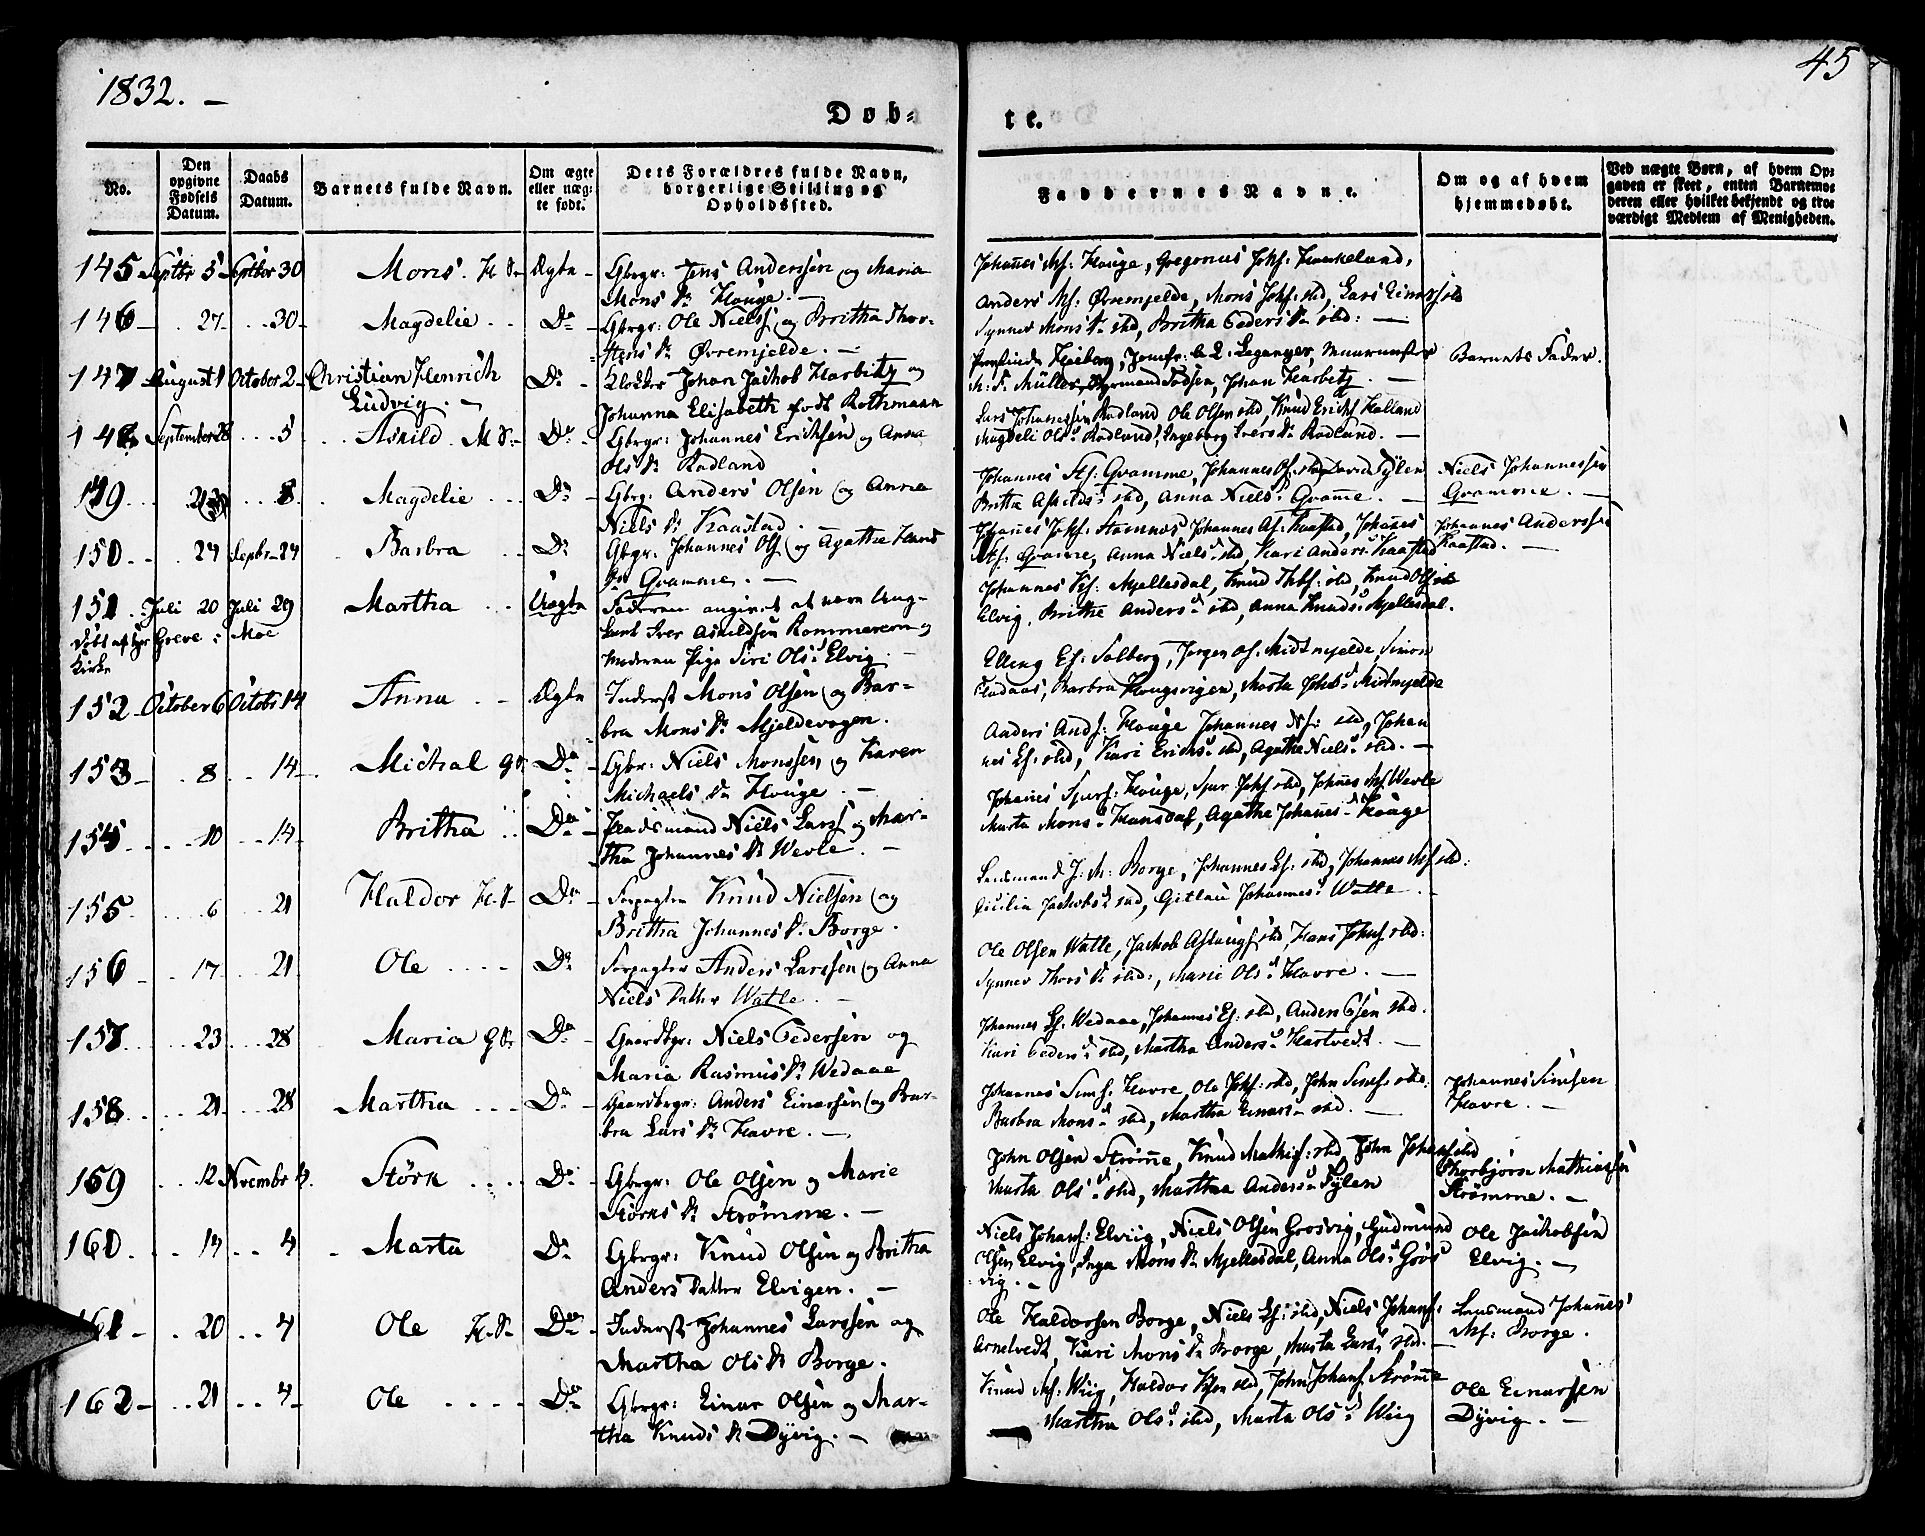 1832. –
45
Døb-
te.
No.
Den opgivne Fødsels Datum.
Daabs Datum.
Barnets fulde Navn.
Om ægte eller uægte født.
Dets Forældres fulde Navn, borgerlige Stilling og Opholdssted.
Faddernes Navne.
Om og af hvem hjemmedøbt.
Ved uægte Børn, af hvem Opgaven er skeet, enten Barnemoderen eller hvilket bekjendt og troeværdigt Medlem af Menigheden.
145 Septbr 5 Septbor 30 Mons. H. S. Ægte Gbrgr: Jens Anderssen og Maria
Mons Dr Houge. –
Johanes Houge, Gregorius Johs:
Anders Øvremjelde, Mons Johs: sted, Lars
146 – 27 – 30 – Magdelie – Do – Gbrgr: Ole Nielss og Britha Thor-
stens Dr Øvremjelde. –
Synnev Mons Dr sted, Britha Peders Dr sted: –
147 August 1 October 2 – Christian Henrich
Ludvig. – Do – Klokker Johan Jachob Harbitz og
Johanna Elisabeth født Rothmann
M: F. Müller, Johan Harbitz. –
Barnets Fader.
148 September 28 – 5 Askild. M. S. – Do – Gbrgr: Johannes Erichsen og Anna
Ols Dr Rødland
Lars Johannessen Rødland Ole Olsen sted, Knud Erichs Halland
Magdeli Ols Dr Rødland, Ingeborg Ivers Dr Rødland. –
149 8 Magdelie – Do – Gbrg: Anders Olsen og Anna
Niels Dr Kaastad.
Johannes Gramme, Tylen
Britha sted, Anna Niels Dr Grame. –
Niels Johannessen
Gramme. –
150 – 24 Septbr – 24 Barbra Do Gbrgr: Johannes Ols og Agathe Hans
Dr Gramme. –
Johanes Johs: Stamnes, Johannes Kaastad, Johanes
Grame, Anna Niels Dr sted Kari Anders Dr Kaastad
Johannes Anderss:
Kaastad. –
151 Juli 20 Juli 29 Martha – Uægte Faderen angivet at være Ung-
karl Iver Askildsen Rommereim og
Moderen Pige Siri Ols Dr Elvig. –
Døbt af Hr Greve i Moe
Kirke
Johannes Mjellesdal, Knud sted, Knud Ols: sted
Elvig, Brithe Anders Dr sted, Anna Knuds Dr Mjellesdal.
152 – October 6 Octobr 14 Anna – Ægte Inderst Mons Olsen og Bar-
bra Mons Dr Mjeldevogen.
Elling Solberg, Jørgen Midtmjelde, Simon
Flodaas, Barbra Hougsvigen, Marta Johs Dr Midtmjelde
153 – 8 – 14 – Michal G. S. Do – Gbr: Niels Monssen og Karen
Michaels Dr Houge. –
Anders Ands: Houge Johannes sted, Johan
nes sted, Kari Erichs Dr sted, Agathe Niels Dr sted. –
154 – 10 – 14 – Britha Do – Niels Larss og Mar-
tha Johannes Dr Wevle. –
Johanes Sjurs: Houge, Sjur Johs sted, Johnes Wevle
Marta Mons Dr Hansdal, Agathe Johanes Dr Houge
155 – 6 – 21 Haldor H. S – Do – Forpagter Knud Nielsen og
Britha Johannes Dr Borge.
Lensmand J. M: Borge, Johannes sted, Johannes sted.
Cicilia Jachobs Dr sted, Gitlau Johannes Dr Watle. –
156 – 17 – 21 Ole – – – Do – Forpagter Anders Larssen og Anna
Niels Datter Watle. –
Ole Olsen Watle, Jachob Aslaugs sted, Hans Johns sted:
Synnev Thors Dr sted:, Marie Ols Dr Havre. –
157 – 23 – 28 Maria G. S. Do – Gaardbgr: Niels Pedersen og
Maria Rasmus Dr Wedaae
Johannes Wedaae, Johannes sted, Anders sted.
Kari Peders Dr sted, Martha Anders Dr Hartvedt. –
158 – 21 – 28 Martha – – Do – Gaardbrgr: Anders Einarsen og Bar-
bra Lars Dr Havre. –
Johannes Sims: Havre, Ole Johs: sted, John Simes: sted.
Barbra Mons Dr sted, Martha Einars Dr sted. –
Johannes Simsen
Havre. –
159 – 12 Novembr Størk – – Do – Gbrgr: Ole Olsen og Marie
Størks Dr Strømme. –
John Olsen Strøme, Knud Mathis: sted, John Johans sted
Marta Ols Dr sted, Marthaa Anders Dr Tylen
Thorbjørn Mathiassen
Strømme. –
160 – 14 – 4 – Marta Do – Gbrgr: Knud Olsen og Britha
Anders Datter Elvigen. –
Niels Johans: Elviig, Niels Olsen Grosvig, Gudmund
Olsen Elvig, Inga Mons Dr Mjellesdal, Anna Ols Dr Gros
vig. –
Ole Jachobsen
Elvig. –
161 – 20 – 4 Ole H. S – Do – Inderst Johannes Larssen og
Martha Ols Dr Borge.
Ole Haldorsen Borge, Niels sted, Niels Johans:
Arnetvedt, Kari Mons Dr Borge, Marta Lars Dr sted. –
Lensmand Johanes
Borge.
162 – 21 – 4 Ole – – – Do – Gbrgr: Einar Olsen og Mar-
tha Knuds Dr Dyvig. –
Knud Wiig, Haldor sted, John Johans Strøme
Martha Ols Dr sted, Marta Ols Dr Wiig
Ole Einarsen
Dyvig. –